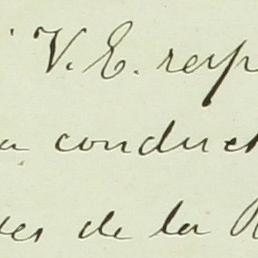 V. E. resp
a conduct
es de la R